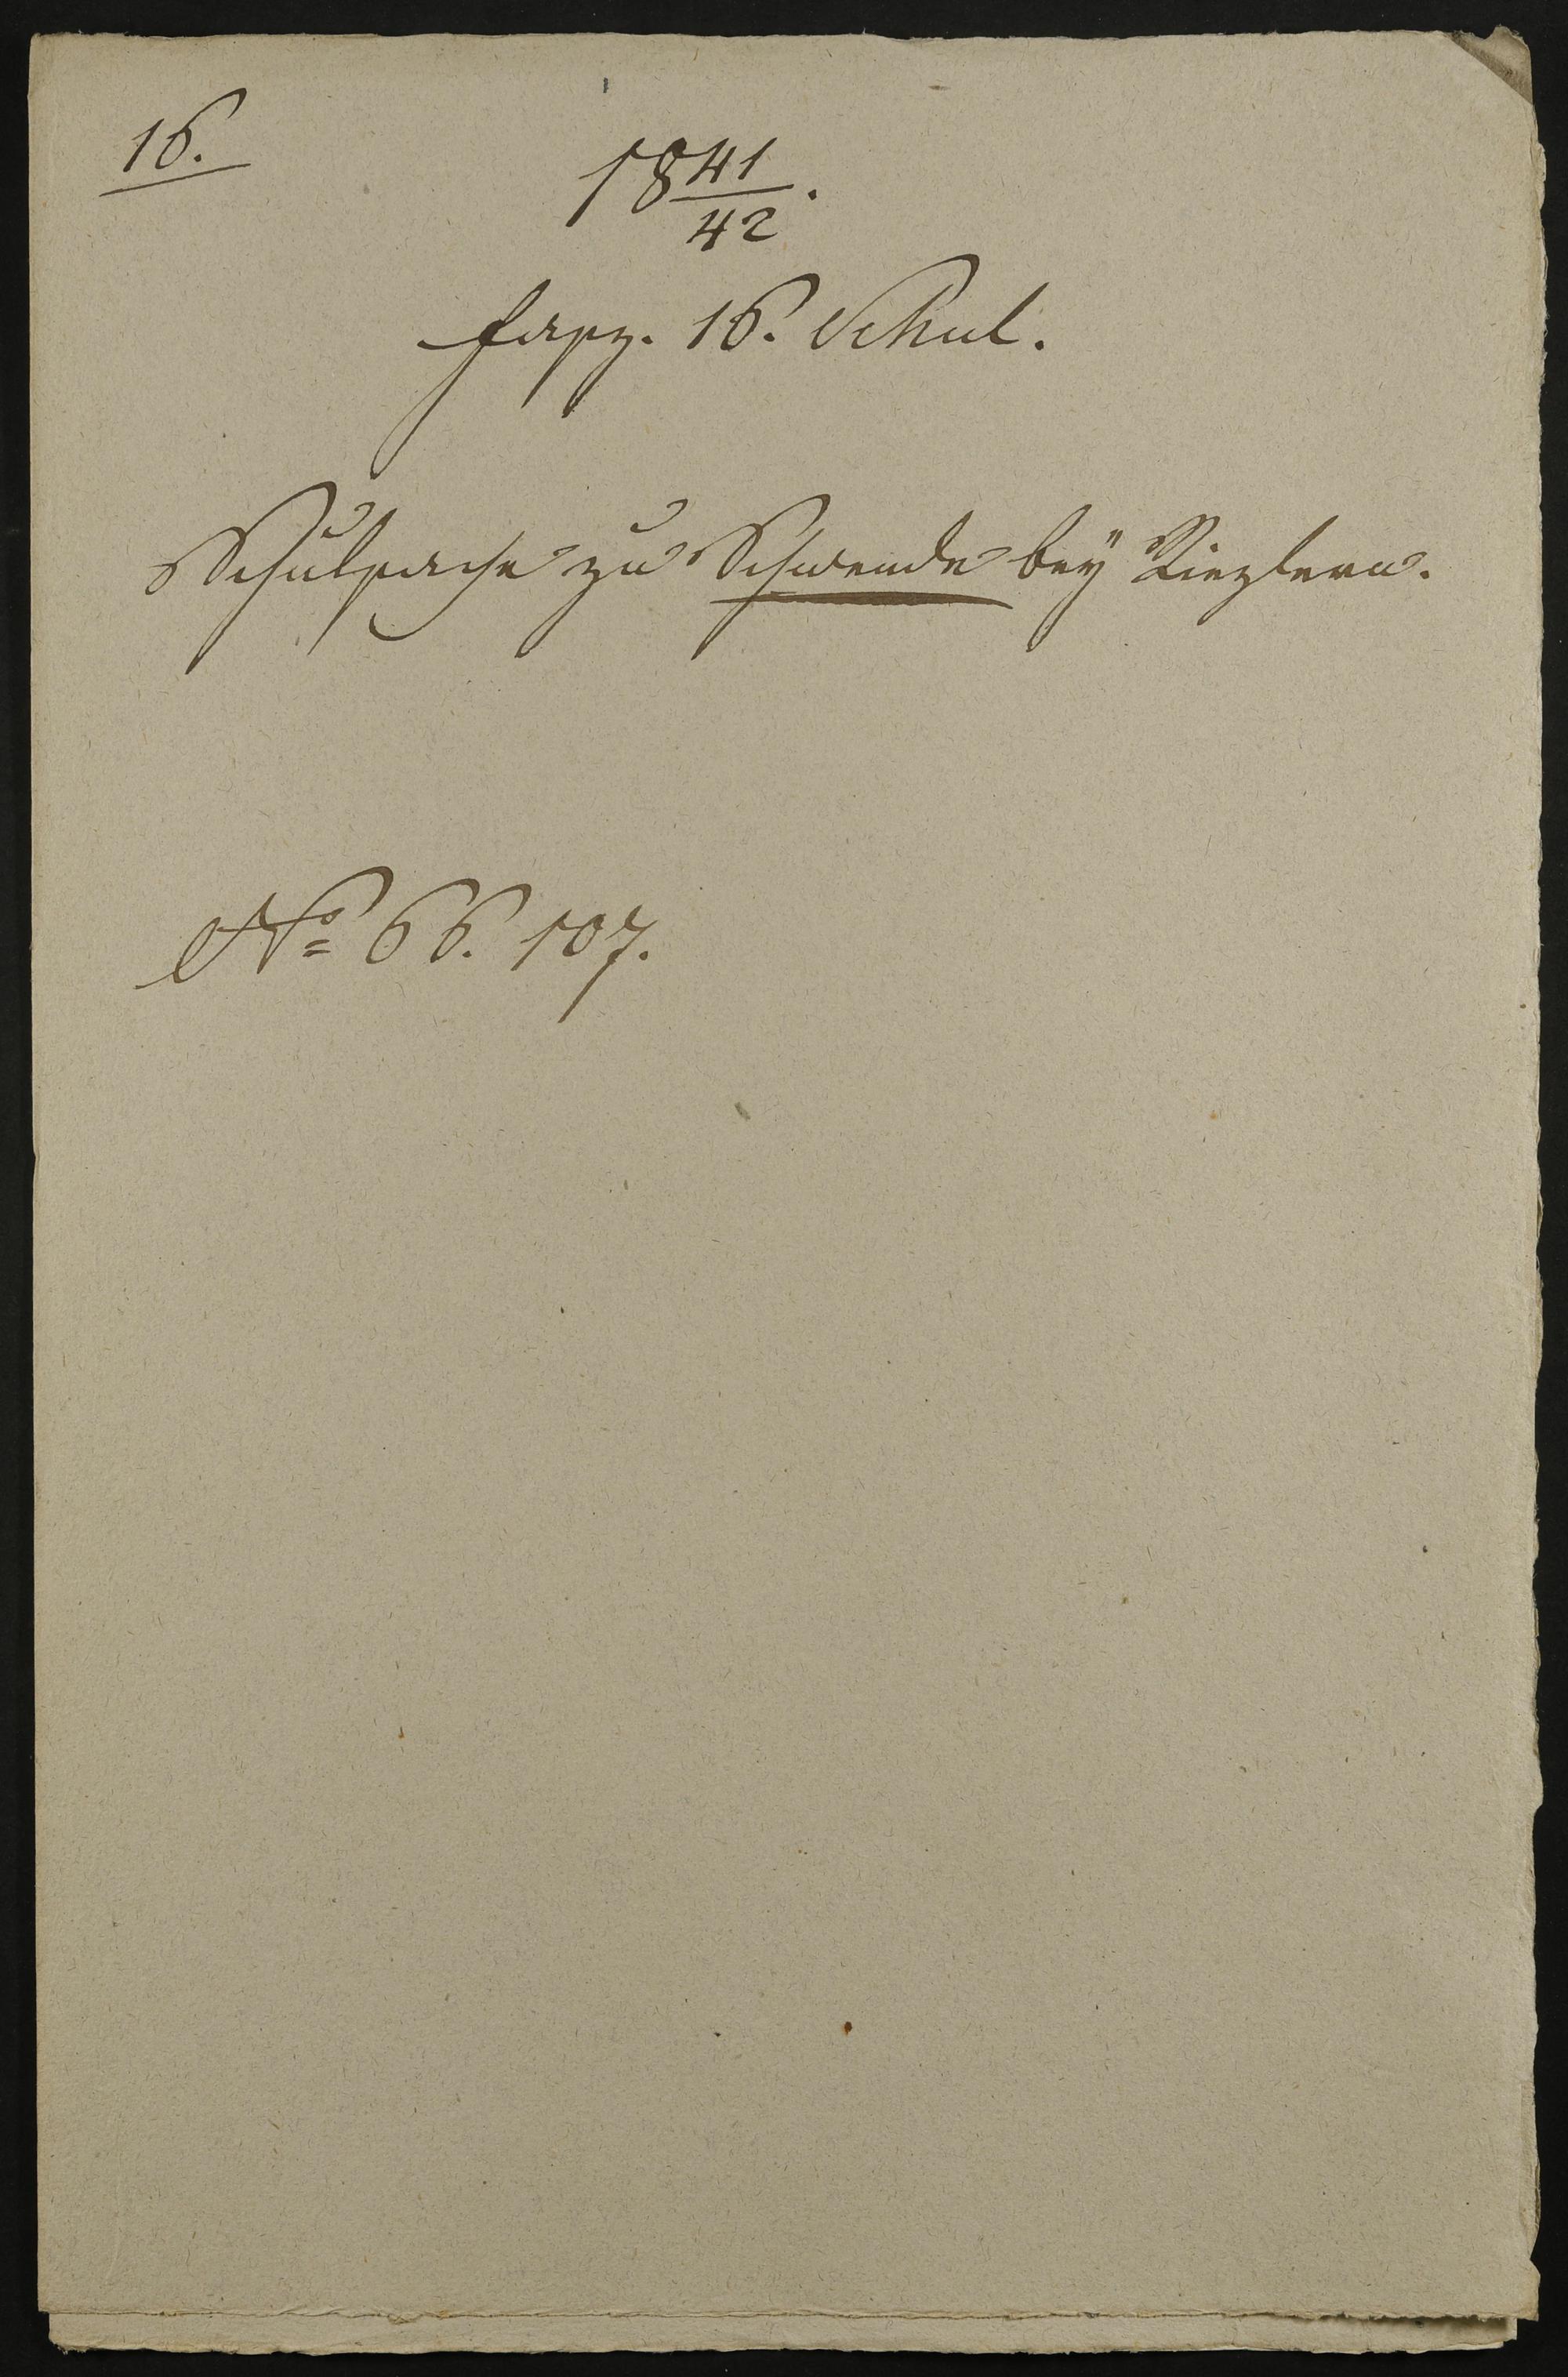 16.
1841/42.
Fasz. 16. Schul.
Schulsache zu Schwende bey Riezlern.
No 66. 107.